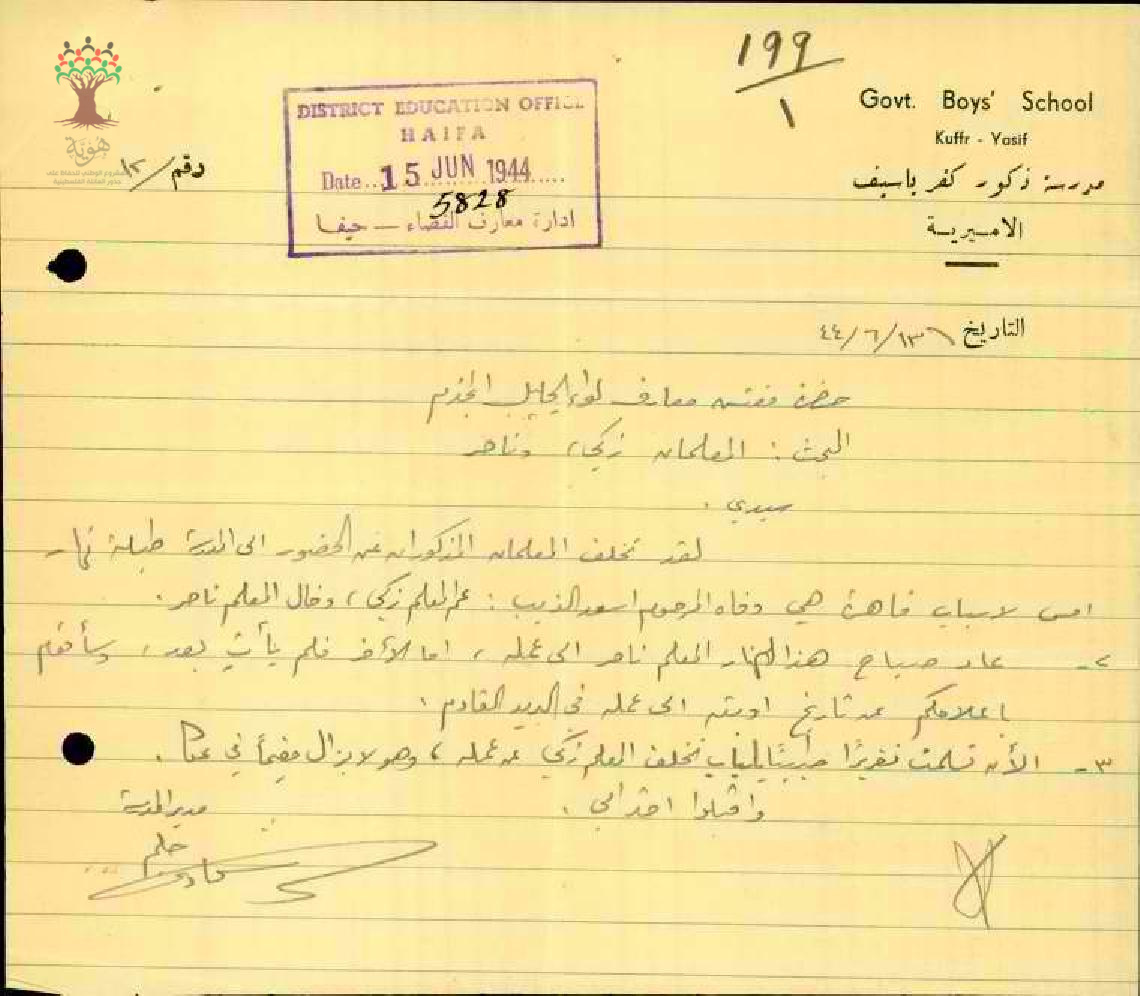 199
١
Govt. Boys' School
Kuffr - Yasif
مدرسة ذكور كفر ياسيف
الاميرية
DISTRICT EDUCATION OFFICE
HAIFA
Date 15 JUN 1944
5828
ادارة معارف القضاء — حيفا
هُوِيَّة
المشروع الوطني للحفاظ على
جذور العائلة الفلسطينية
رقم /١٢
التاريخ ١٣/٦/٤٤
حضرة مفتش معارف لواء الجليل المحترم
البحث : المعلمان زكي، وناصر
سيدي .
لقد تخلف المعلمان المذكوران عن الحضور الى المدرسة طيلة نهار
امس لاسباب قاهرة هي وفاة المرحوم اسعد الذيب : عم المعلم زكي ، وخال المعلم ناصر .
٢- عاد صباح هذا النهار المعلم ناصر الى عمله ، اما الآخر فلم يأت بعد ، وسأقوم
باعلامكم عن تاريخ اوبته الى عمله في البريد القادم .
٣- الآن تسلمت تقريرًا طبيًا تخلف المعلم زكي عن عمله ، وهو لا يزال مقيماً في عكا .
واقبلوا احترامي .
مدير المدرسة